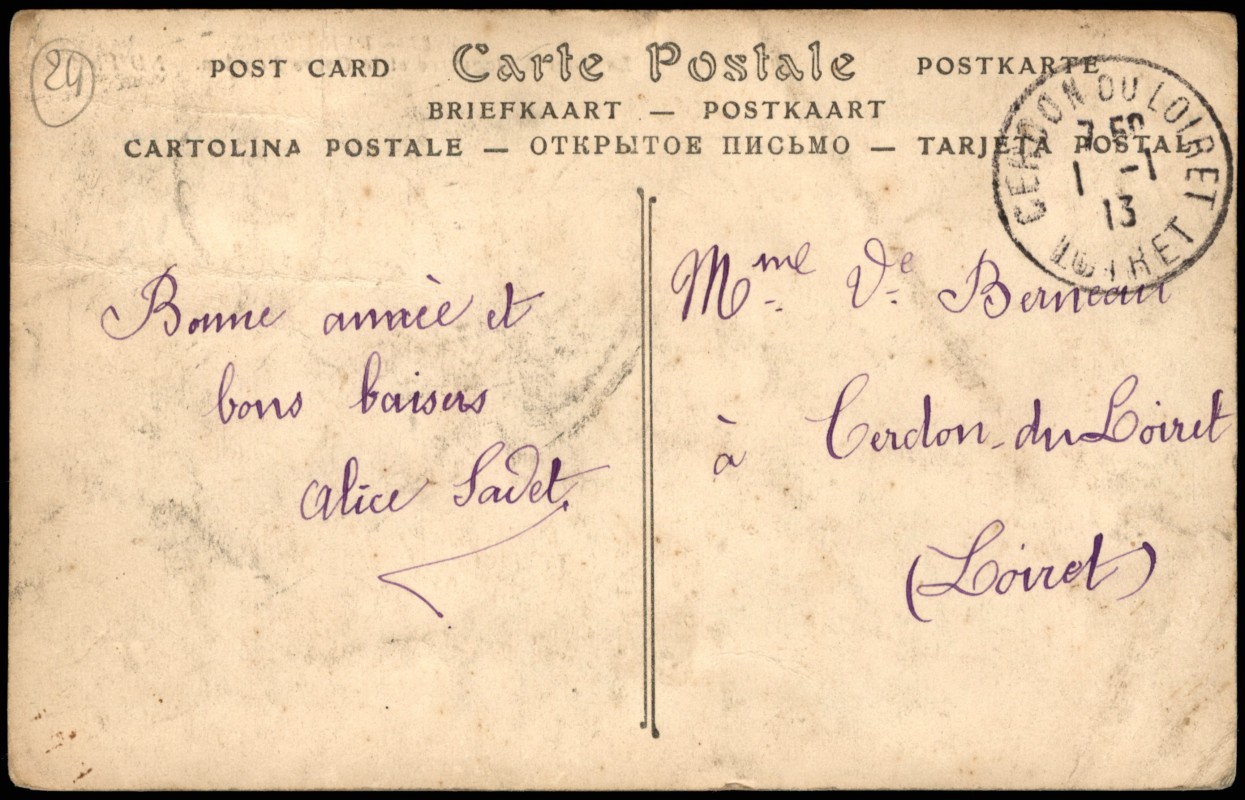 24
POST CARD Carte Postale POSTKARTE
BRIEFKAART — POSTKAART
CARTOLINA POSTALE — ОТКРЫТОЕ ПИСЬМО — TARJETA POSTAL
CERDON DU LOIRET
7 50
1 -1
13
LOIRET
Bonne année et
bons baisers
Alice Sadet
Mme Ve Berneau
à Cerdon-du-Loiret
(Loiret)